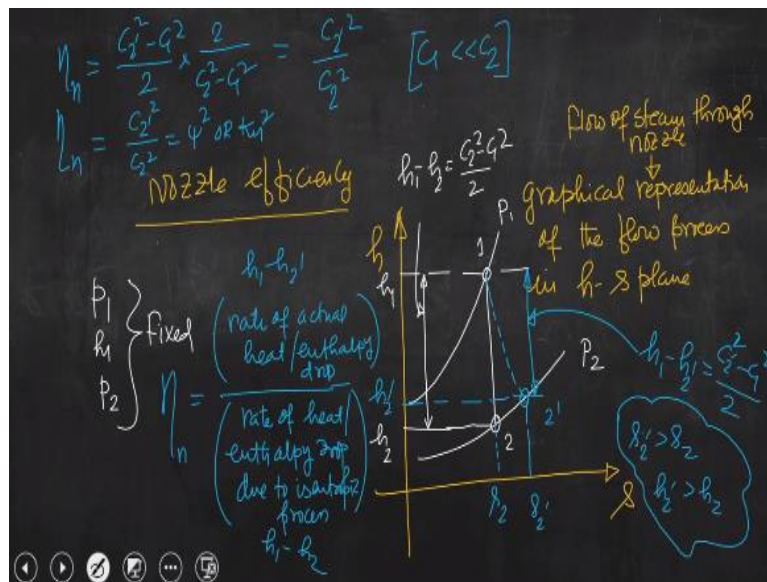 ηₙ = (C₂'² - C₁²)/2 × 2/(C₂² - C₁²) = C₂'²/C₂² [C₁ << C₂]
ηₙ = C₂'²/C₂² = ψ² OR kₙ²
Nozzle efficiency
Flow of steam through
nozzle
graphical representation
of the flow process
in h-s plane
h₁-h₂ = (C₂²-C₁²)/2
P₁
h₁
P₂
fixed
ηₙ =
h₁-h₂'
(rate of actual
heat/enthalpy
drop)
(rate of heat/
enthalpy drop
due to isentropic
process)
h₁-h₂
h
h₁
h₂'
h₂
P₁
1
P₂
2'
2
s₂ s₂'
s
h₁-h₂' = (C₂'²-C₁²)/2
s₂' > s₂
h₂' > h₂